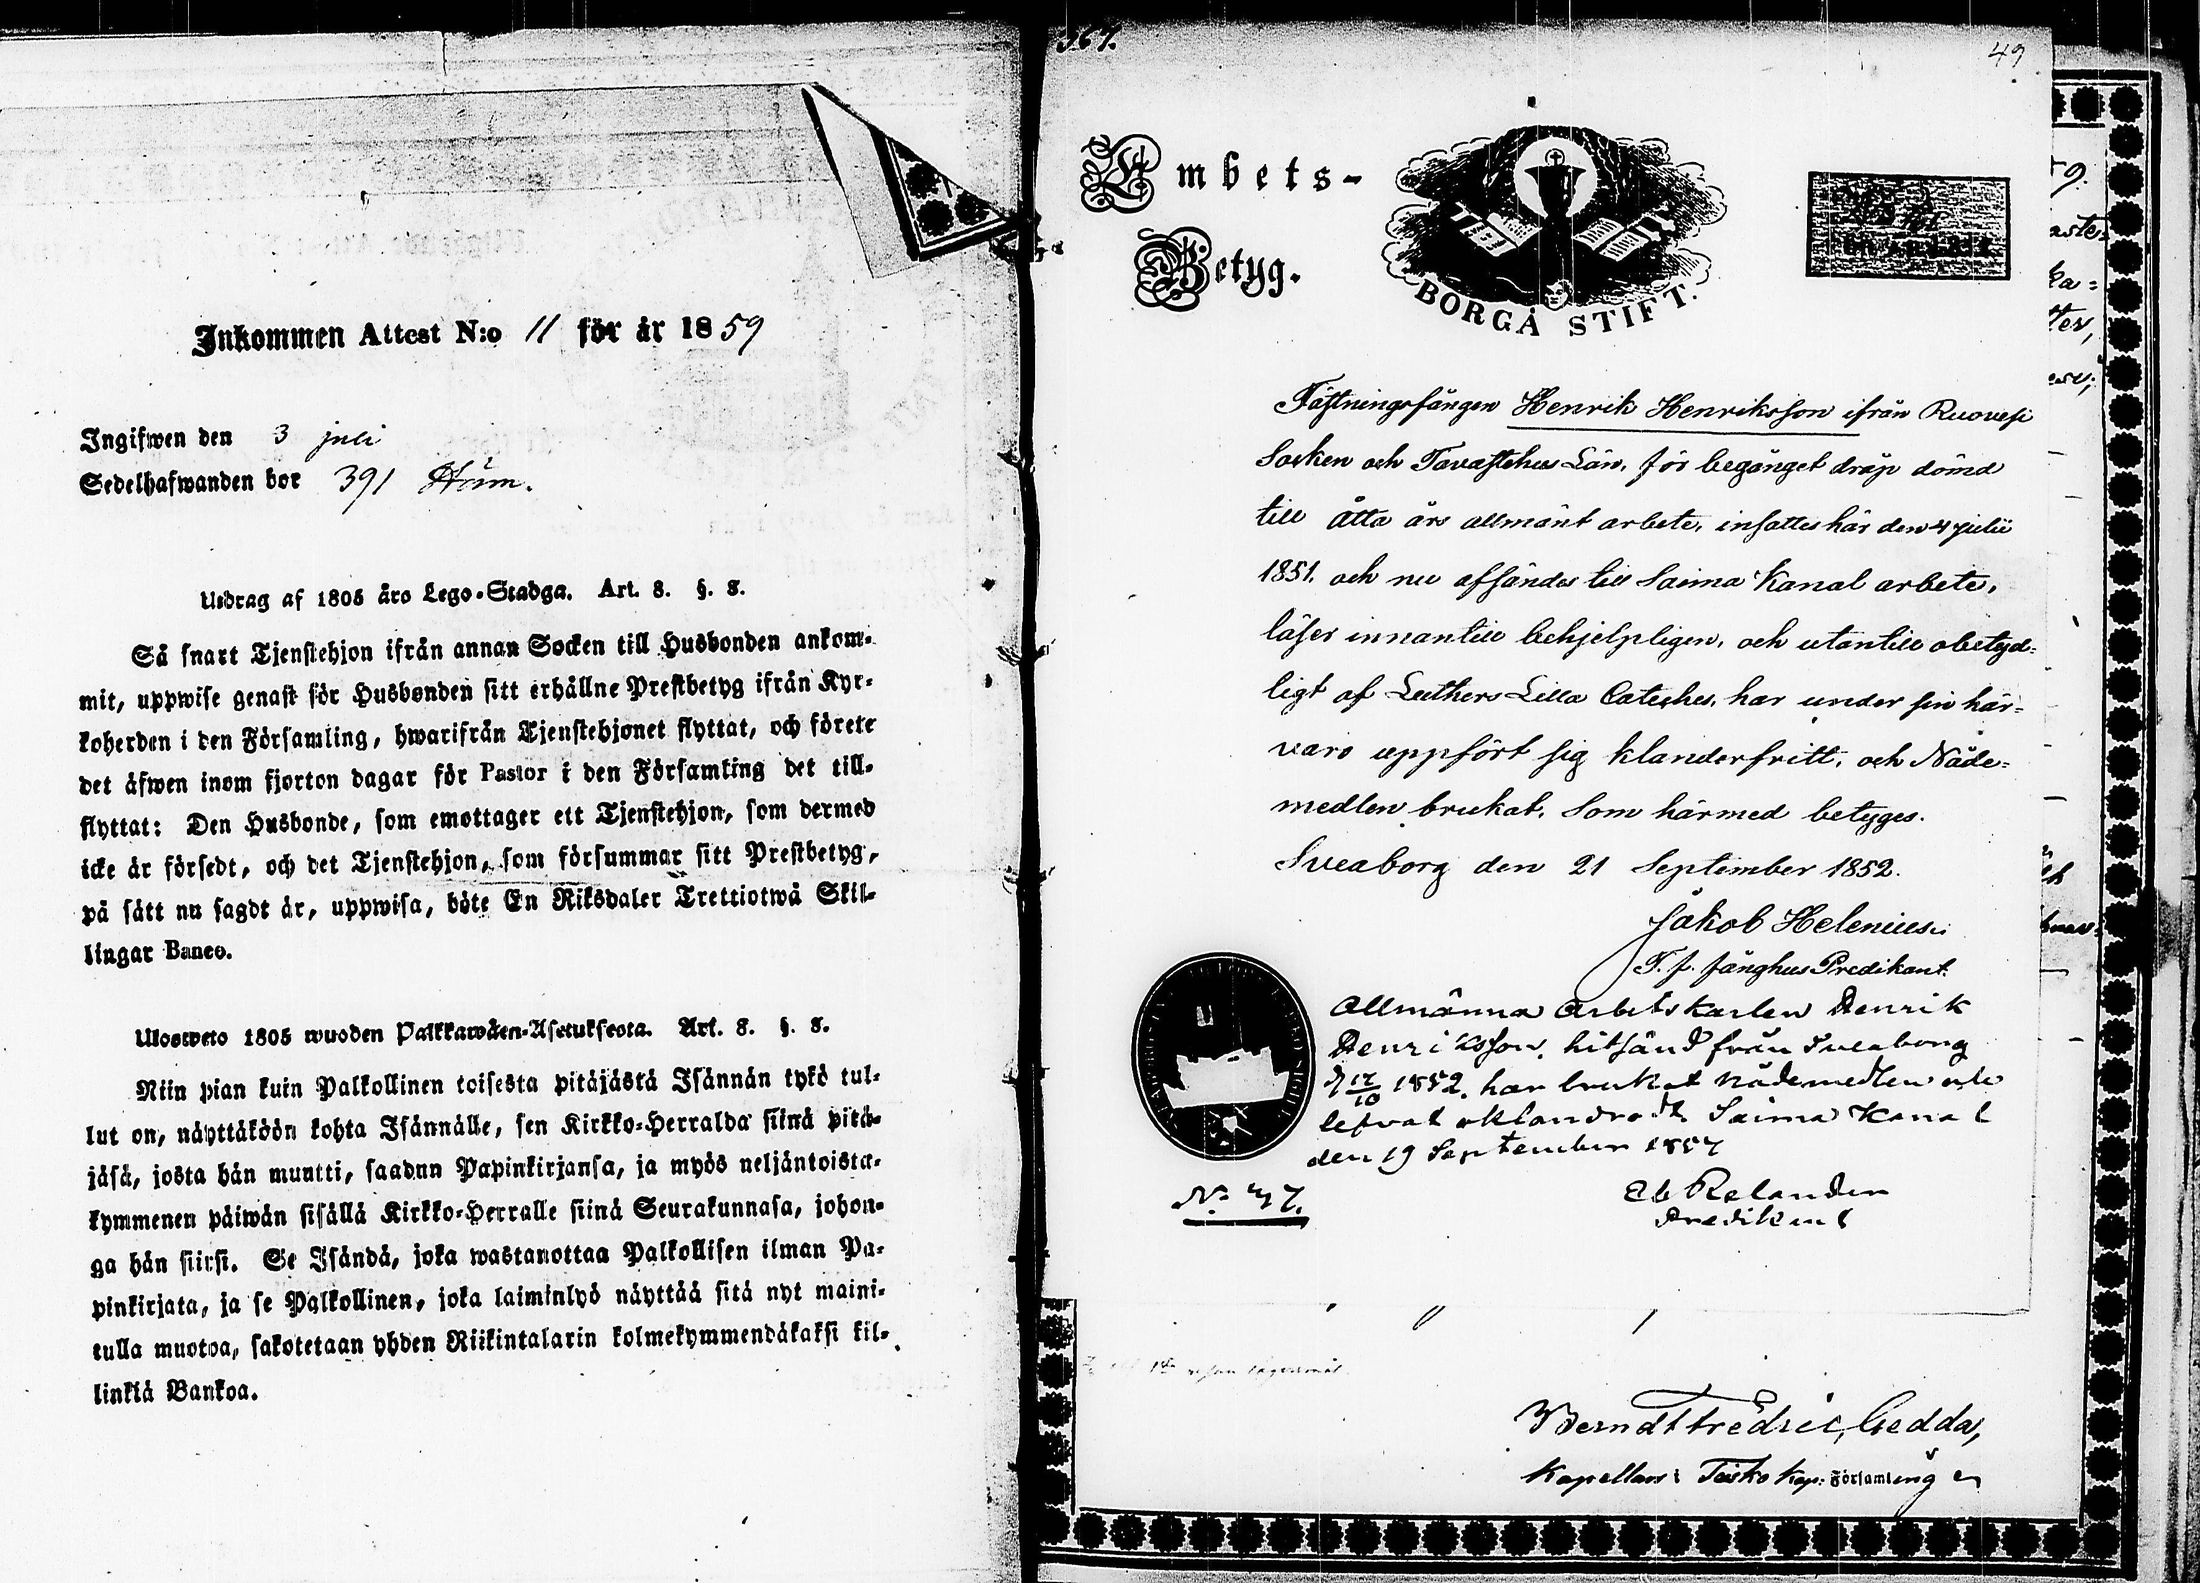 Inkommen Attest N:o 11 för år 1859
Ingifwen den 3 juli
Sedelhafwanden bor 391
Utdrag af 1805 års Lego-Stadga. Art. 8. §. 8.
Så snart Tjenstehjon ifrån annan Socken till Husbonden ankom-
mit, uppwise genast för Husbonden sitt erhållne Prestbetyg ifrån Kyr-
koherden i den Församling, hwarifrån Tjenstehjonet flyttat, och förete
det äfwen inom fjorton dagar för Pastor i den Församling det till-
flyttat: Den Husbonde, som emottager ett Tjenstehjon, som dermed
icke är försedt, och det Tjenstehjon, som försummar sitt Prestbetyg,
på sätt nu sagdt är, uppwisa, böte En Riksdaler Trettiotwå Skil-
lingar Banco.
Ulosweto 1805 wuoden Palkkawäen-Asetuksesta. Art. 8. §. 8.
Niin pian kuin Palkollinen toisesta pitäjästä Isännän tykö tul-
lut on, näyttäköön kohta Isännälle, sen Kirkko-Herralda siinä pitä-
jäsä, josta hän muutti, saadun Papinkirjansa, ja myös neljäntoista-
kymmenen päiwän sisällä Kirkko-Herralle siinä Seurakunnasa, johon-
ga hän siirsi. Se Isändä, joka wastanottaa Palkollisen ilman Pa-
pinkirjata, ja se Palkollinen, joka laiminlyö näyttää sitä nyt maini-
tulla muotoa, sakotetaan yhden Riikintalarin kolmekymmendäkaksi kil-
linkiä Bankoa.
367.
49
Embets-
Betyg.
BORGÅ STIFT.
Fästningsfången Henrik Henriksson ifrån Ruovesi
Socken och Tavastehus Län, för begånget dråp dömd
till åtta års allmänt arbete, insattes här den 4 Julii
1851, och nu afsändes till Saima Kanal arbete,
läser innantill behjelpligen, och utantill obetyd-
ligt af Luthers Lilla Cateches, har under sin här-
varo uppfört sig klanderfritt, och Nåde-
medlen brukat, Som härmed betyges.
Sveaborg den 21 September 1852.
Jakob Helenius
T. f. fånghus Predikant.
Allmänna arbetskarlen Henrik
Henriksson, hitsänd från Sveaborg
d 12/10 1852, har brukat nådemedlen och
lefvat oklandradt Saima Kanal
den 19 September 1857
Relander
Predikant
No 47.
Berndt Fredric Gedda,
Kapellan i Teisko Kap: Församling